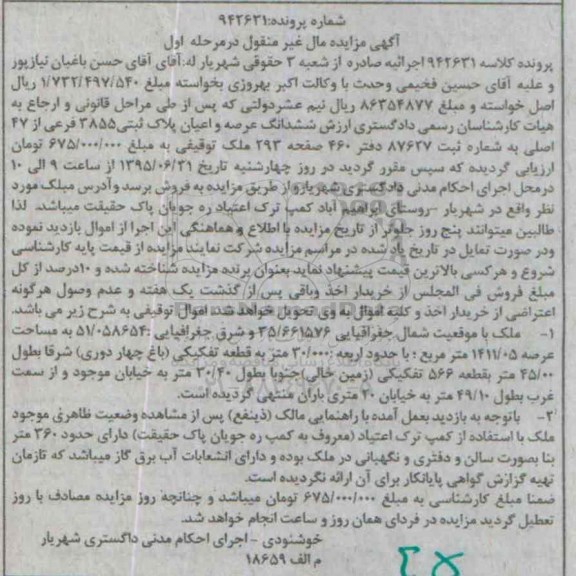 شماره پرونده:۹۴۲۶۳۱
آگهی مزایده مال غیر منقول درمرحله اول
پرونده کلاسه ۹۴۲۶۳۱ اجرائیه صادره از شعبه ۳ حقوقی شهریار له:آقای آقای حسن باغبان نیازپور
و علیه آقای حسین فخیمی وحدت با وکالت اکبر بهروزی بخواسته مبلغ ۱/۷۳۲/۴۹۷/۵۴۰ ریال
اصل خواسته و مبلغ ۸۶۳۵۴۸۷۷ ریال نیم عشردولتی که پس از طی مراحل قانونی و ارجاع به
هیات کارشناسان رسمی دادگستری ارزش ششدانگ عرصه و اعیان پلاک ثبتی۳۸۵۵ فرعی از ۴۷
اصلی به شماره ثبت ۸۷۶۲۷ دفتر ۴۶۰ صفحه ۲۹۳ ملک توقیفی به مبلغ ۶۷۵/۰۰۰/۰۰۰ تومان
ارزیابی گردیده که سپس مقرر گردید در روز چهارشنبه تاریخ ۱۳۹۵/۰۶/۳۱ از ساعت ۹ الی ۱۰
درمحل اجرای احکام مدنی دادگستری شهریار از طریق مزایده به فروش برسد و آدرس ملک مورد
نظر واقع در شهریار –روستای ابراهیم آباد کمپ ترک اعتیاد ره جویان پاک حقیقت میباشد. لذا
طالبین میتوانند پنج روز جلوتر از تاریخ مزایده با اطلاع و هماهنگی این اجرا از اموال بازدید نموده
ودر صورت تمایل در تاریخ یاد شده در مراسم مزایده شرکت نمایند مزایده از قیمت پایه کارشناسی
شروع و هرکسی بالاترین قیمت پیشنهاد نماید بعنوان برنده مزایده شناخته شده و ۱۰درصد از کل
مبلغ فروش فی المجلس از خریدار اخذ وباقی پس از گذشت یک هفته و عدم وصول هرگونه
اعتراضی از خریدار اخذ و کلیه اموال به وی تحویل خواهد شد. اموال توقیفی به شرح زیر می باشد.
۱- ملک با موقعیت شمال جغرافیایی ۳۵/۶۶۱۵۷۶ و شرق جغرافیایی :۵۱/۰۵۸۶۵۴ به مساحت
عرصه ۱۴۱۱/۰۵ متر مربع ؛ با حدود اربعه :۳۰/۰۰۰ متر به قطعه تفکیکی (باغ چهار دوری) شرقا بطول
۴۵/۰۰ متر بقطعه ۵۶۶ تفکیکی (زمین خالی)جنوبا بطول ۳۰/۴۰ متر به خیابان موجود و از سمت
غرب بطول ۴۹/۱۰ متر به خیابان ۲۰ متری باران منتهی گردیده است.
۲- باتوجه به بازدید بعمل آمده با راهنمایی مالک (ذینفع) پس از مشاهده وضعیت ظاهری موجود
ملک با استفاده از کمپ ترک اعتیاد (معروف به کمپ ره جویان پاک حقیقت) دارای حدود ۳۶۰ متر
بنا بصورت سالن و دفتری و نگهبانی در ملک بوده و دارای انشعابات آب برق گاز میباشد که تازمان
تهیه گزارش گواهی پایانکار برای آن ارائه نگردیده است.
ضمنا مبلغ کارشناسی به مبلغ ۶۷۵/۰۰۰/۰۰۰ تومان میباشد و چنانچه روز مزایده مصادف با روز
تعطیل گردید مزایده در فردای همان روز و ساعت انجام خواهد شد.
خوشنودی – اجرای احکام مدنی داگستری شهریار
م الف ۱۸۶۵۹